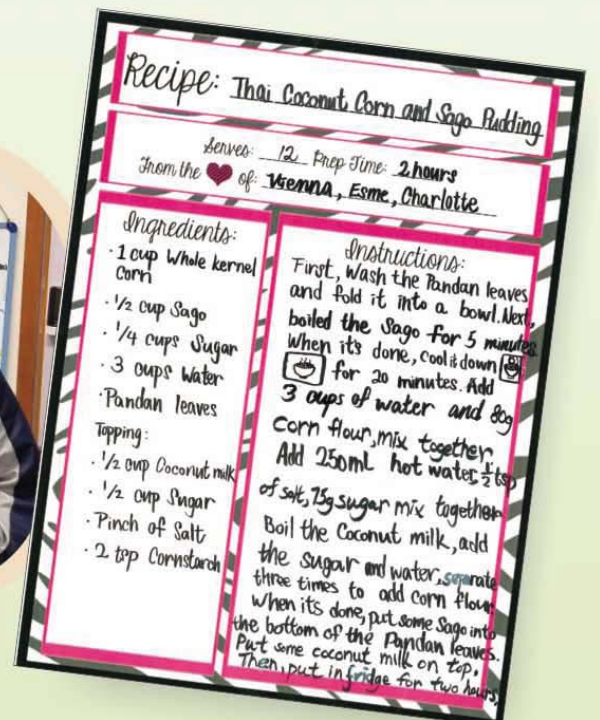 Recipe: Thai Coconut Corn and Sago Pudding
Serves: 12 Prep Time: 2 hours
From the of: Vienna, Esme, Charlotte
Ingredients:
· 1 cup Whole kernel
Corn
· 1/2 cup Sago
· 1/4 cups Sugar
· 3 cups Water
· Pandan leaves
Topping:
· 1/2 cup Coconut milk
· 1/2 cup Sugar
· Pinch of Salt
· 2 tsp Cornstarch
Instructions:
First, Wash the Pandan leaves
and fold it into a bowl. Next,
boiled the Sago for 5 minutes
When it's done, cool it down
for 20 minutes. Add
3 cups of water and 80g
Corn flour, mix together
Add 250mL hot water 1/2 tsp
of salt, 75g sugar mix together
Boil the Coconut milk, add
the sugar and water, separate
three times to add corn flour.
When its done, put some Sago into
the bottom of the Pandan leaves.
Put some coconut milk on top.
Then, put in fridge for two hours,